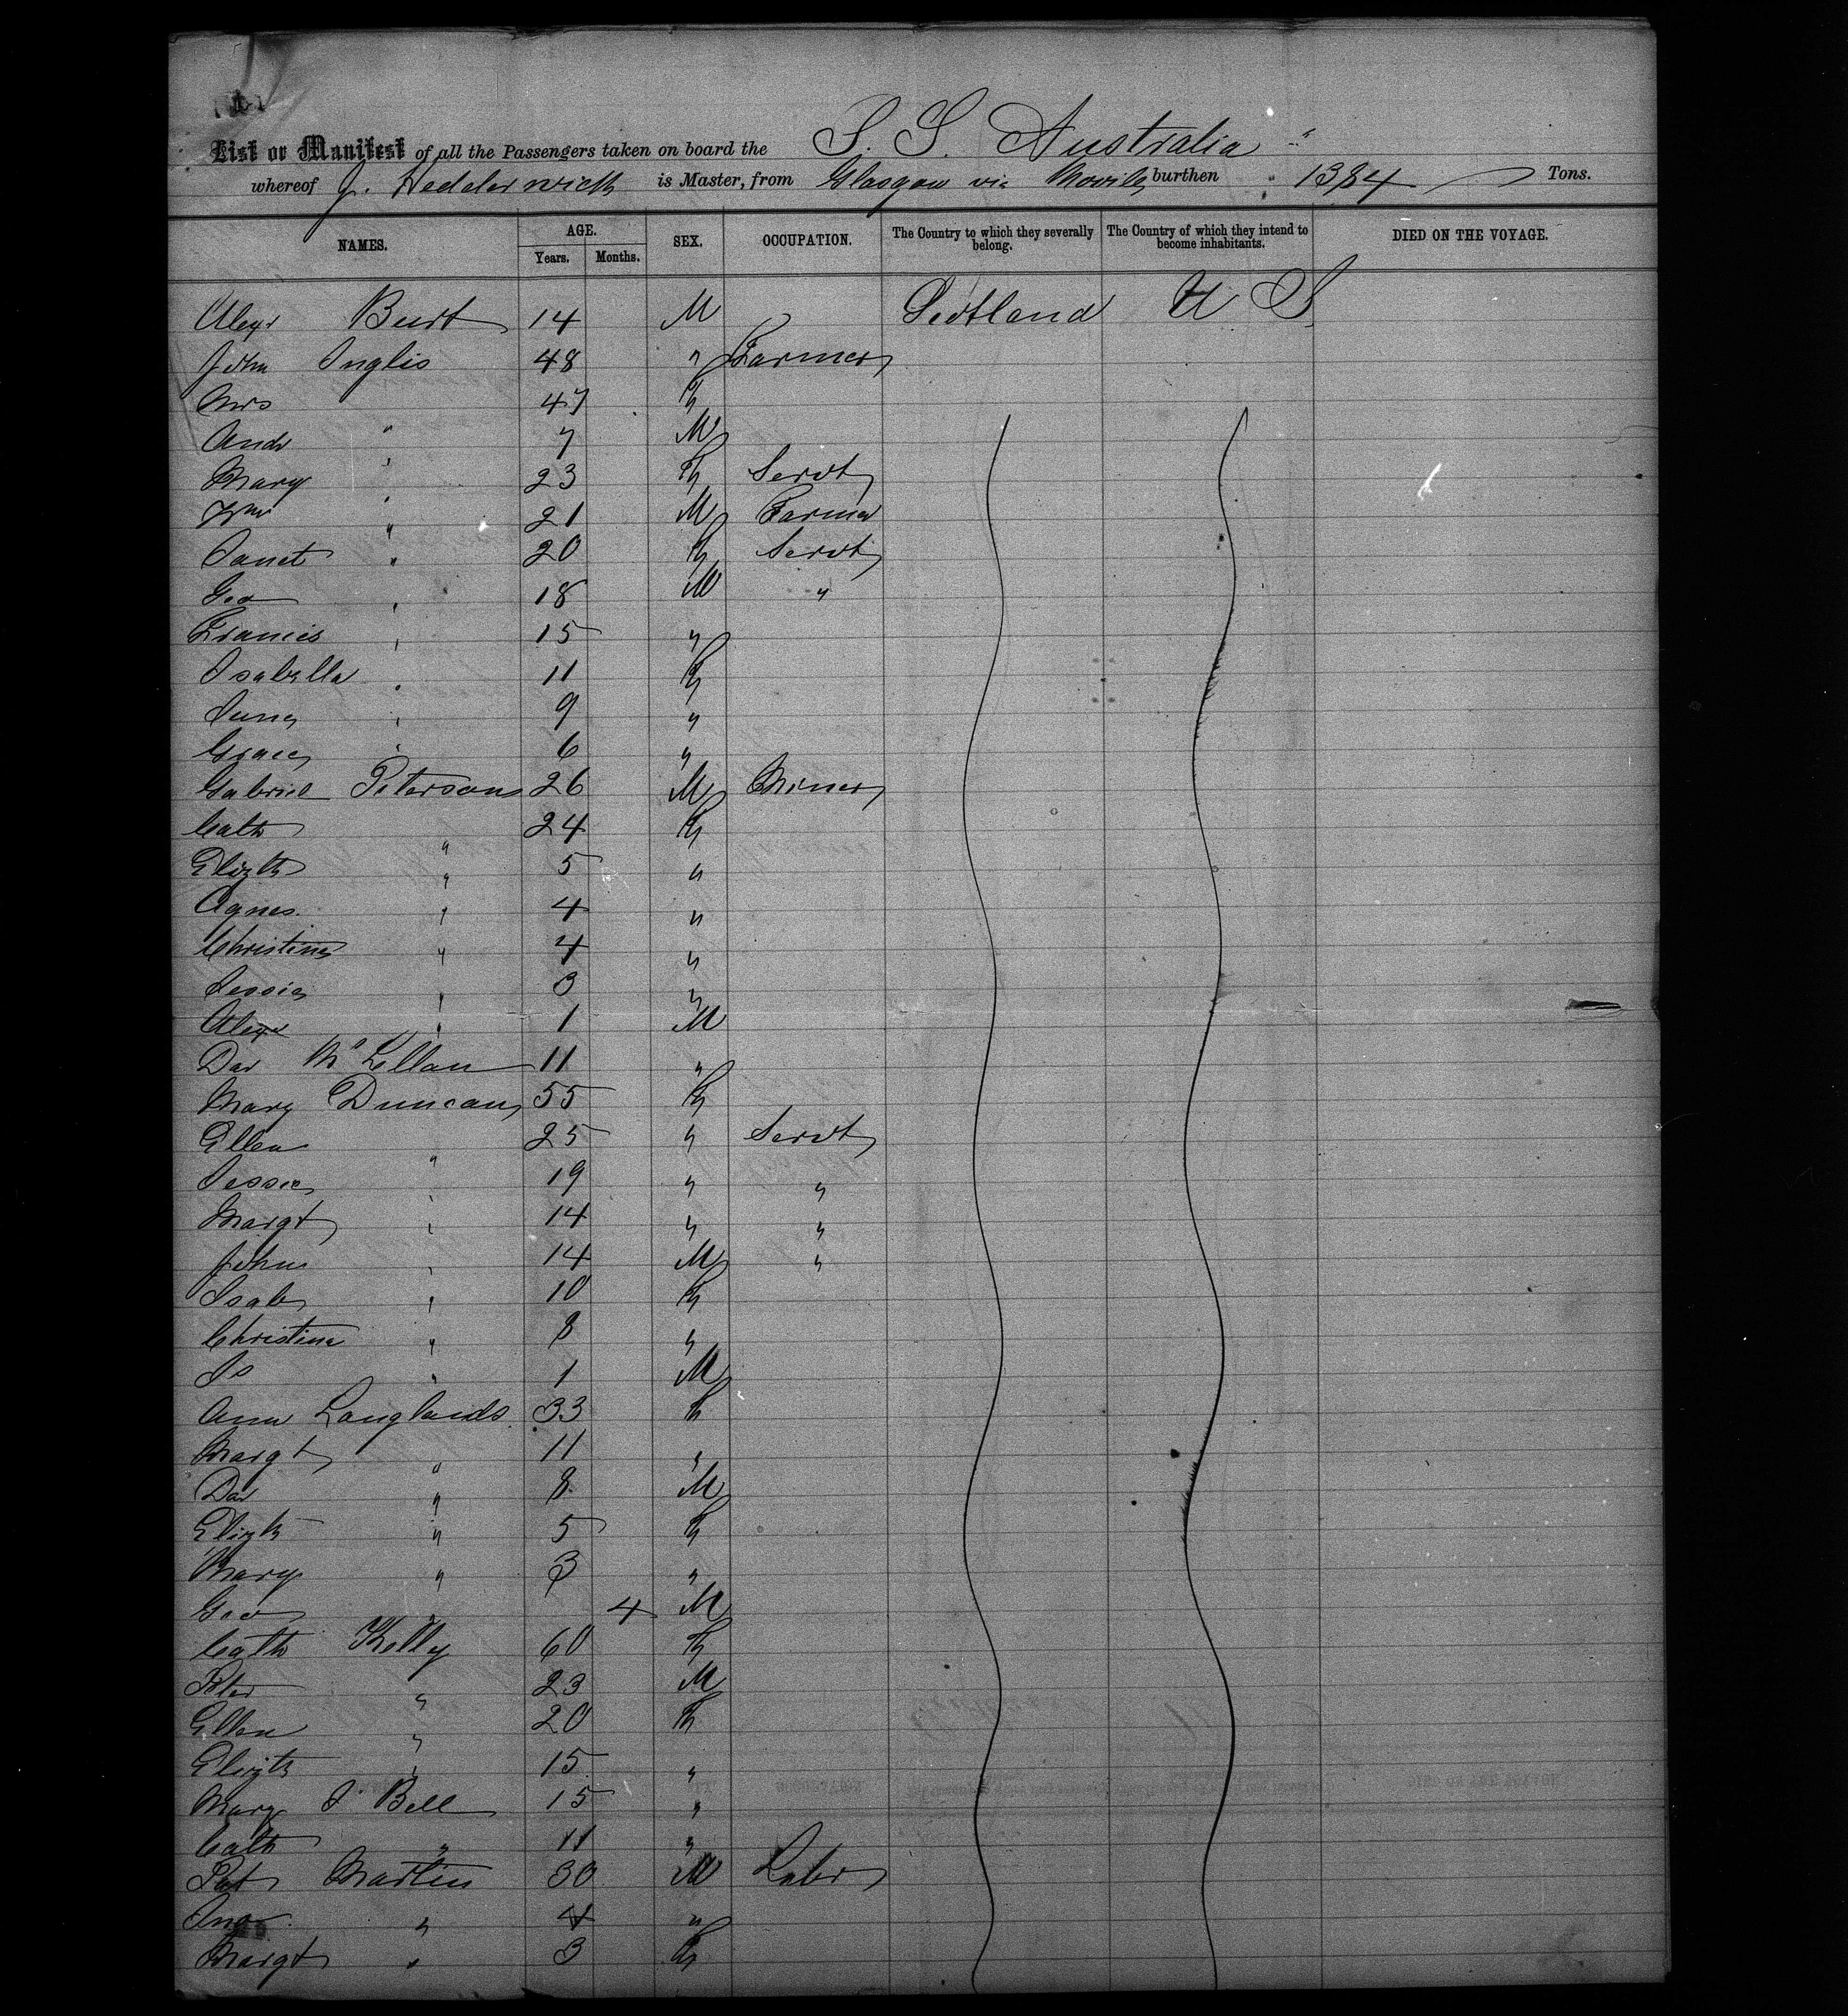 List or Manifest of all the Passengers taken on board the S. S. Australia "
whereof J. Hedderwick is Master, from Glasgow via Moville burthen 1384 Tons.
NAMES. AGE. Years. Months. SEX. OCCUPATION. The Country to which they severally belong. The Country of which they intend to become inhabitants. DIED ON THE VOYAGE.
Alexr Burt 14 M Scotland U S
John Inglis 48 " Farmer
Mrs " 47 F
Andr " 7 M
Mary " 23 F Servt
Wm " 21 M Farmer
Janet " 20 F Servt
Geo " 18 M "
Francis " 15 "
Isabella " 11 F
June " 9 "
Grace " 6 "
Gabriel Peterson 26 M Miner
Cath " 24 F
Elizth " 5 "
Agnes " 4 "
Christina " 4 "
Jessie " 3 "
Alexr " 1 M
Dav McLellan 11 "
Mary Duncan 55 F
Ellen " 25 " Servt
Jessie " 19 " "
Margt " 14 " "
John " 14 M "
Isab " 10 F
Christina " 8 "
Js " 1 M
Ann Langlands 33 F
Margt " 11 "
Dav " 8 M
Elizth " 5 F
Mary " 3 "
Geo " 4 M
Cath Kelly 60 F
Peter " 23 M
Ellen " 20 F
Elizth " 15 "
Mary J Bell 15 "
Cath " 11 "
Pat Martin 30 M Labr
Jno " 4 "
Margt " 3 F